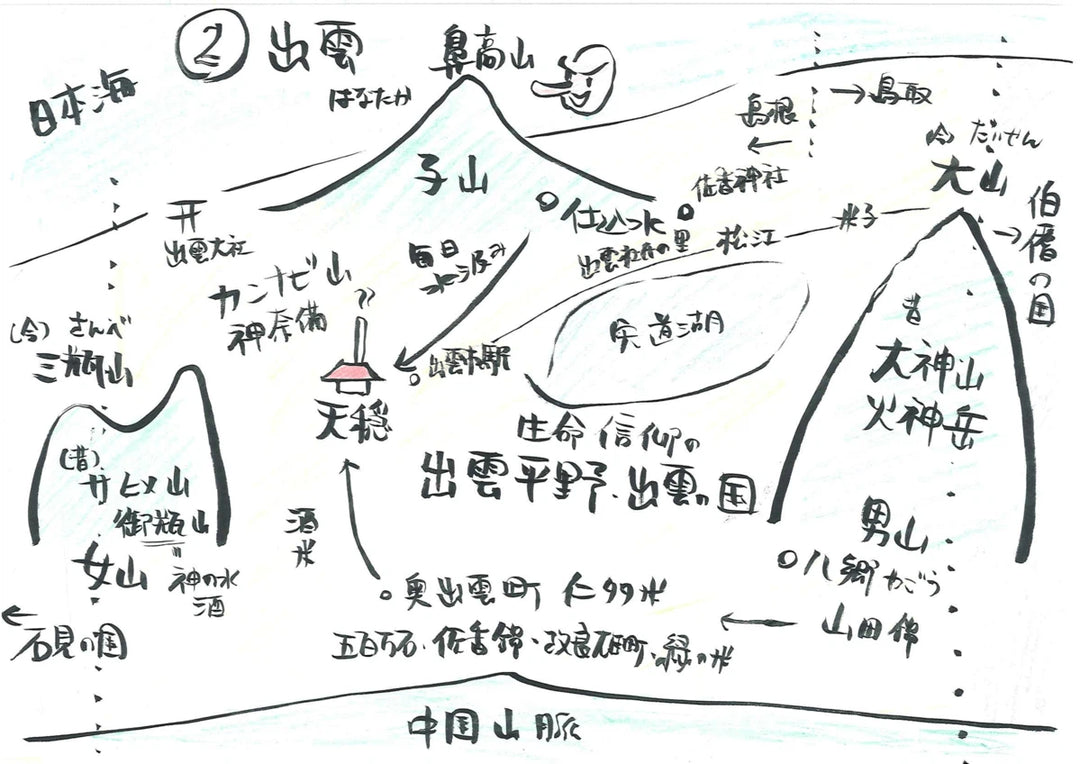 ② 出雲
日本海
鼻高山
はなたか
子山
島根
←
→鳥取
(今) だいせん
大山
→伯耆の国
佐香神社
仕込つ水
出雲杜氏の里
松江
米子
开
出雲大社
カンナビ山
神奈備
毎日
水汲み
出雲市駅
宍道湖
天穏
(今) さんべ
三瓶山
(昔)
サヒメ山
御瓶山
=
神の水
酒
女山
←
石見の国
生命信仰の
出雲平野、出雲の国
昔
大神山
火神岳
男山
八郷 やごう
← 山田錦
酒米
奥出雲町 仁多米
五百万石・佐香錦・改良雄町・縁の米
中国山脈